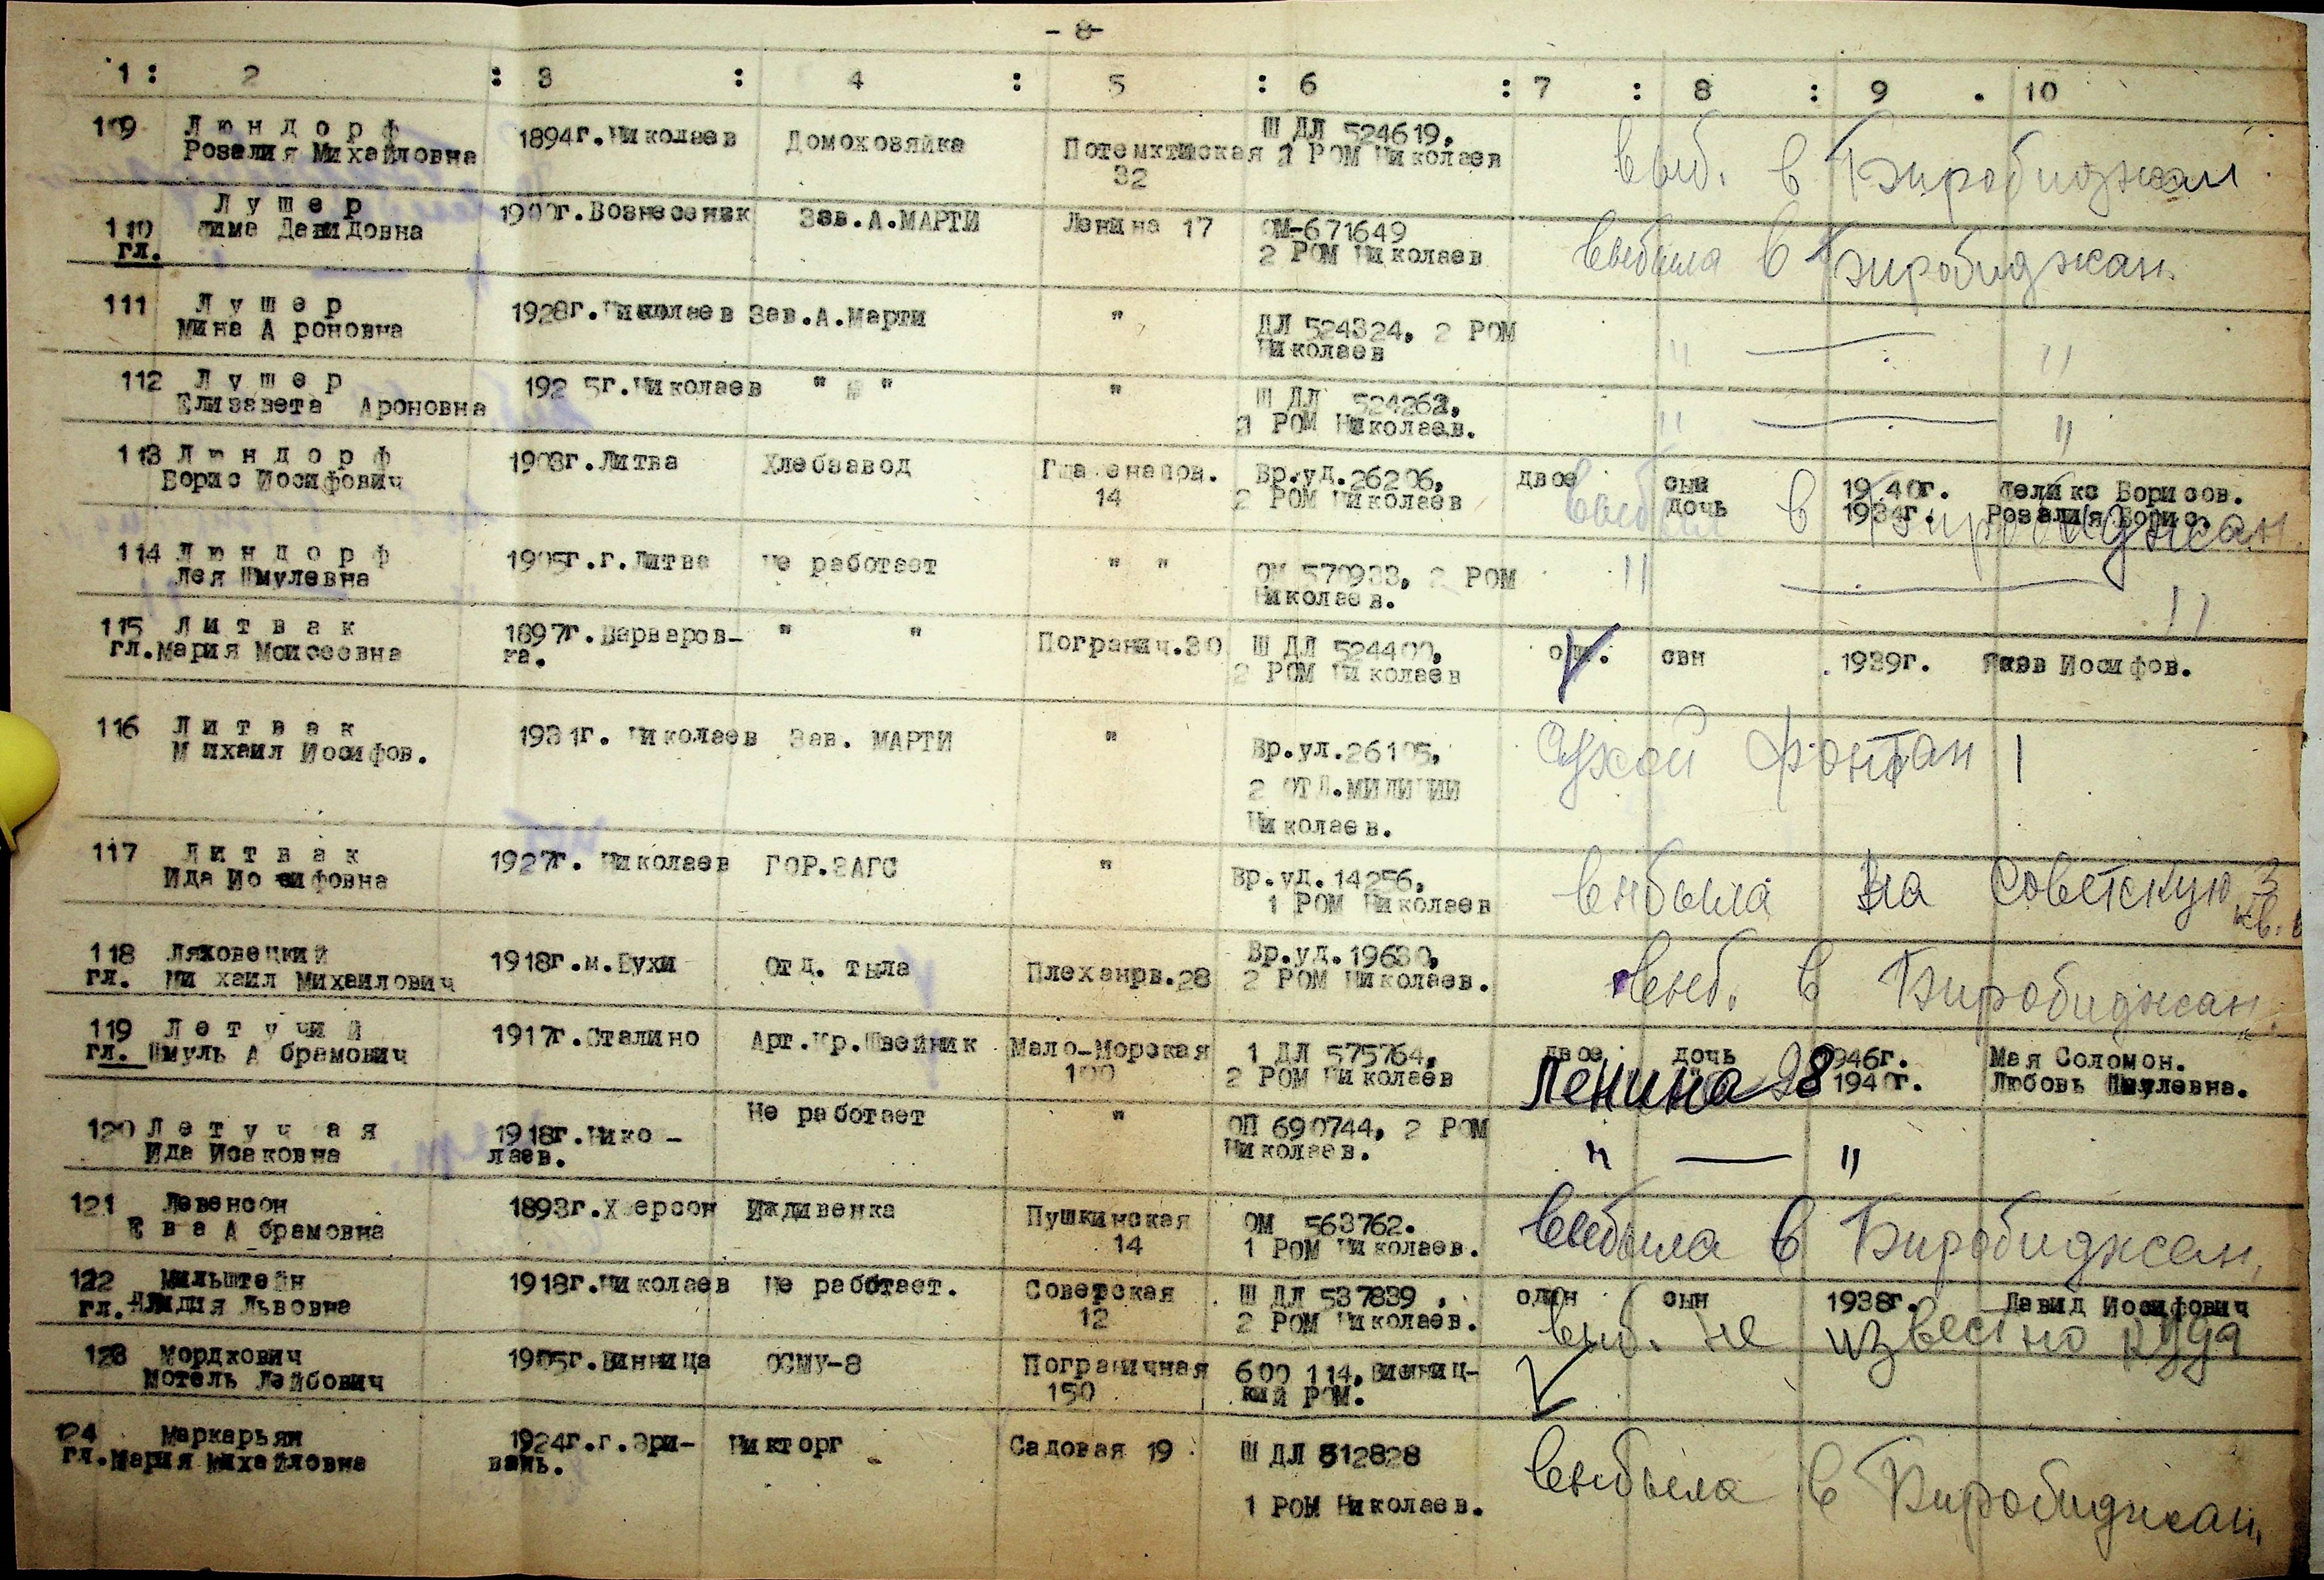 - 8 -
1 : 2 : 3 : 4 : 5 : 6 : 7 : 8 : 9 . 10
109 Люндорф 1894г.Николаев Домохозяйка Потемкинская Ш ДЛ 524619, выб. в Биробиджан
Розалия Михайловна 32 2 РОМ Николаев
110 Лушер 1900г.Вознесенск Зав.А.МАРТИ Ленина 17 ОМ-671649 выбыла в Биробиджан
гл. Давидовна 2 РОМ Николаев
111 Лушер 1928г.Николаев Зав.А.Марти " ДЛ 524324, 2 РОМ " — "
Мина Ароновна Николаев
112 Лушер 1925г.Николаев " " " " Ш ДЛ 524262, " — "
Елизавета Ароновна 2 РОМ Николаев.
113 Люндорф 1903г.Литва Хлебзавод Вр.уд.26206, двое сын 1940г. Феликс Борисов.
Борис Иосифович 14 2 РОМ Николаев дочь 1934г. Розалия Борис.
в Биробиджан
114 Люндорф 1905г.г.Литва Не работает " " ОМ 570933, 2 РОМ " — "
Лея Шмулевна Николаев.
115 Литвак 1897г.Варваров- " " Погранич.30 Ш ДЛ 524400, сын 1939г. Иосифов.
гл. Мария Моисеевна ка. 2 РОМ Николаев
116 Литвак 1931г. Николаев Зав. МАРТИ " Вр.уд.26105, Сухой фонтан 1
Михаил Иосифов. 2 ОТД.МИЛИЦИИ
Николаев.
117 Литвак 1927г. Николаев ГОР.ЗАГС " Вр.уд.14256, выбыла на Советскую 3
Ида Иосифовна 1 РОМ Николаев кв.
118 Ляховецкий 1918г.м.Бухи Отд. тыла Плеханов.28 Вр.уд.19630, выб. в Биробиджан.
гл. Михаил Михаилович 2 РОМ Николаев.
119 Летучий 1917г.Сталино Арт.Кр.Швейник Мало-Морская 1 ДЛ 575764, двое дочь 1946г. Мая Соломон.
гл. Шмуль Абрамович 100 2 РОМ Николаев 1940г. Любовь Шмулевна.
Ленина 28
120 Летучая 1918г.Нико- Не работает " ОП 690744, 2 РОМ " — "
Ида Исаковна лаев. Николаев.
121 Левенсон 1893г.Херсон Иждивенка Пушкинская ОМ 563762. выбыла в Биробиджан,
Ева Абрамовна 14 1 РОМ Николаев.
122 Мильштейн 1918г.Николаев Не работает. Советская Ш ДЛ 537839 , один сын 1938г. Давид Иосифович
гл. Лидия Львовна 12 2 РОМ Николаев. выб. не известно куда
123 Мордкович 1905г.Винница ОСМУ-8 Пограничная 600 114,Винниц-
Мотель Лейбович 150 кий РОМ.
124 Маркарьян 1924г.г.Эри- Никторг Садовая 19 Ш ДЛ 512828 выбыла в Биробиджан,
гл. Мария Михайловна вань.
1 РОМ Николаев.